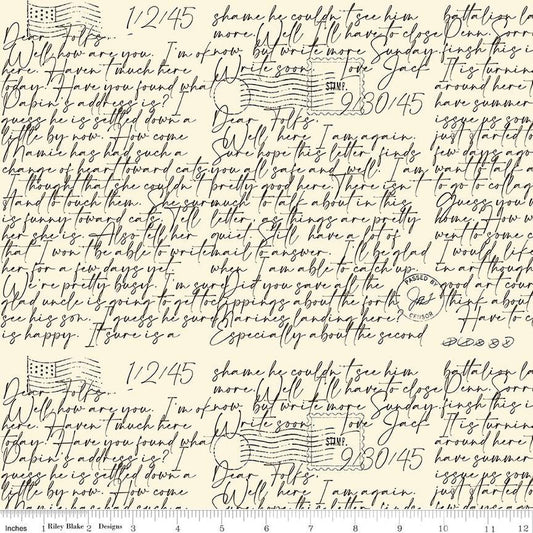 1/2/45
Dear Folks..
Well how are you. I'm of
here. Haven't much here
today. Have you found what
Papin's address is?
guess he is settled down a
little by now. How come
Mamie has had such a
change of heart toward cats
I thought that she couldn't
stand to touch them. She sure
is funny toward cats. Tell
her she is. Also tell her
that I won't be able to write
her for a few days yet.
We're pretty busy. I'm sure
glad uncle is going to get to
see his son. I guess he sure
is happy. It sure is a
shame he couldn't see him
more. Well I'll have to close
now but write more Sunday.
Write soon Love Jack
STAMP.
9/30/45
Dear Folks.
Well here I am again.
Sure hope this letter finds
you all safe and well. I am
pretty good here. There isn't
much to talk about in this
letter, as things are pretty
quiet. Still have a lot of
mail to answer. I'll be glad
when I am able to catch up.
Did you save all the
clippings about the forth
Marines landing here?
Especially about the second
battalion la
Denn. Sorry
finsh this i
It is turnin
around here t
have summer
issue us som
just started to
few days ago
want to take a
to go to collag
Guess you w
home. How w
went to see
I would like
in art though
good art cour
think about
Have to c
PASSED BY
CENSOR
1/2/45
Dear Folks..
Well how are you. I'm of
here. Haven't much here
today. Have you found what
Papin's address is?
guess he is settled down a
little by now. How come
Mamie has had such a
shame he couldn't see him
more. Well I'll have to close
now but write more Sunday.
Write soon Love Jack
STAMP.
9/30/45
Dear Folks.
Well here I am again.
battalion la
Denn. Sorry
finsh this i
It is turnin
around here t
have summer
issue us som
just started to
few days ago
Inches 1 Riley Blake 2 Designs 3 4 5 6 7 8 9 10 11 12